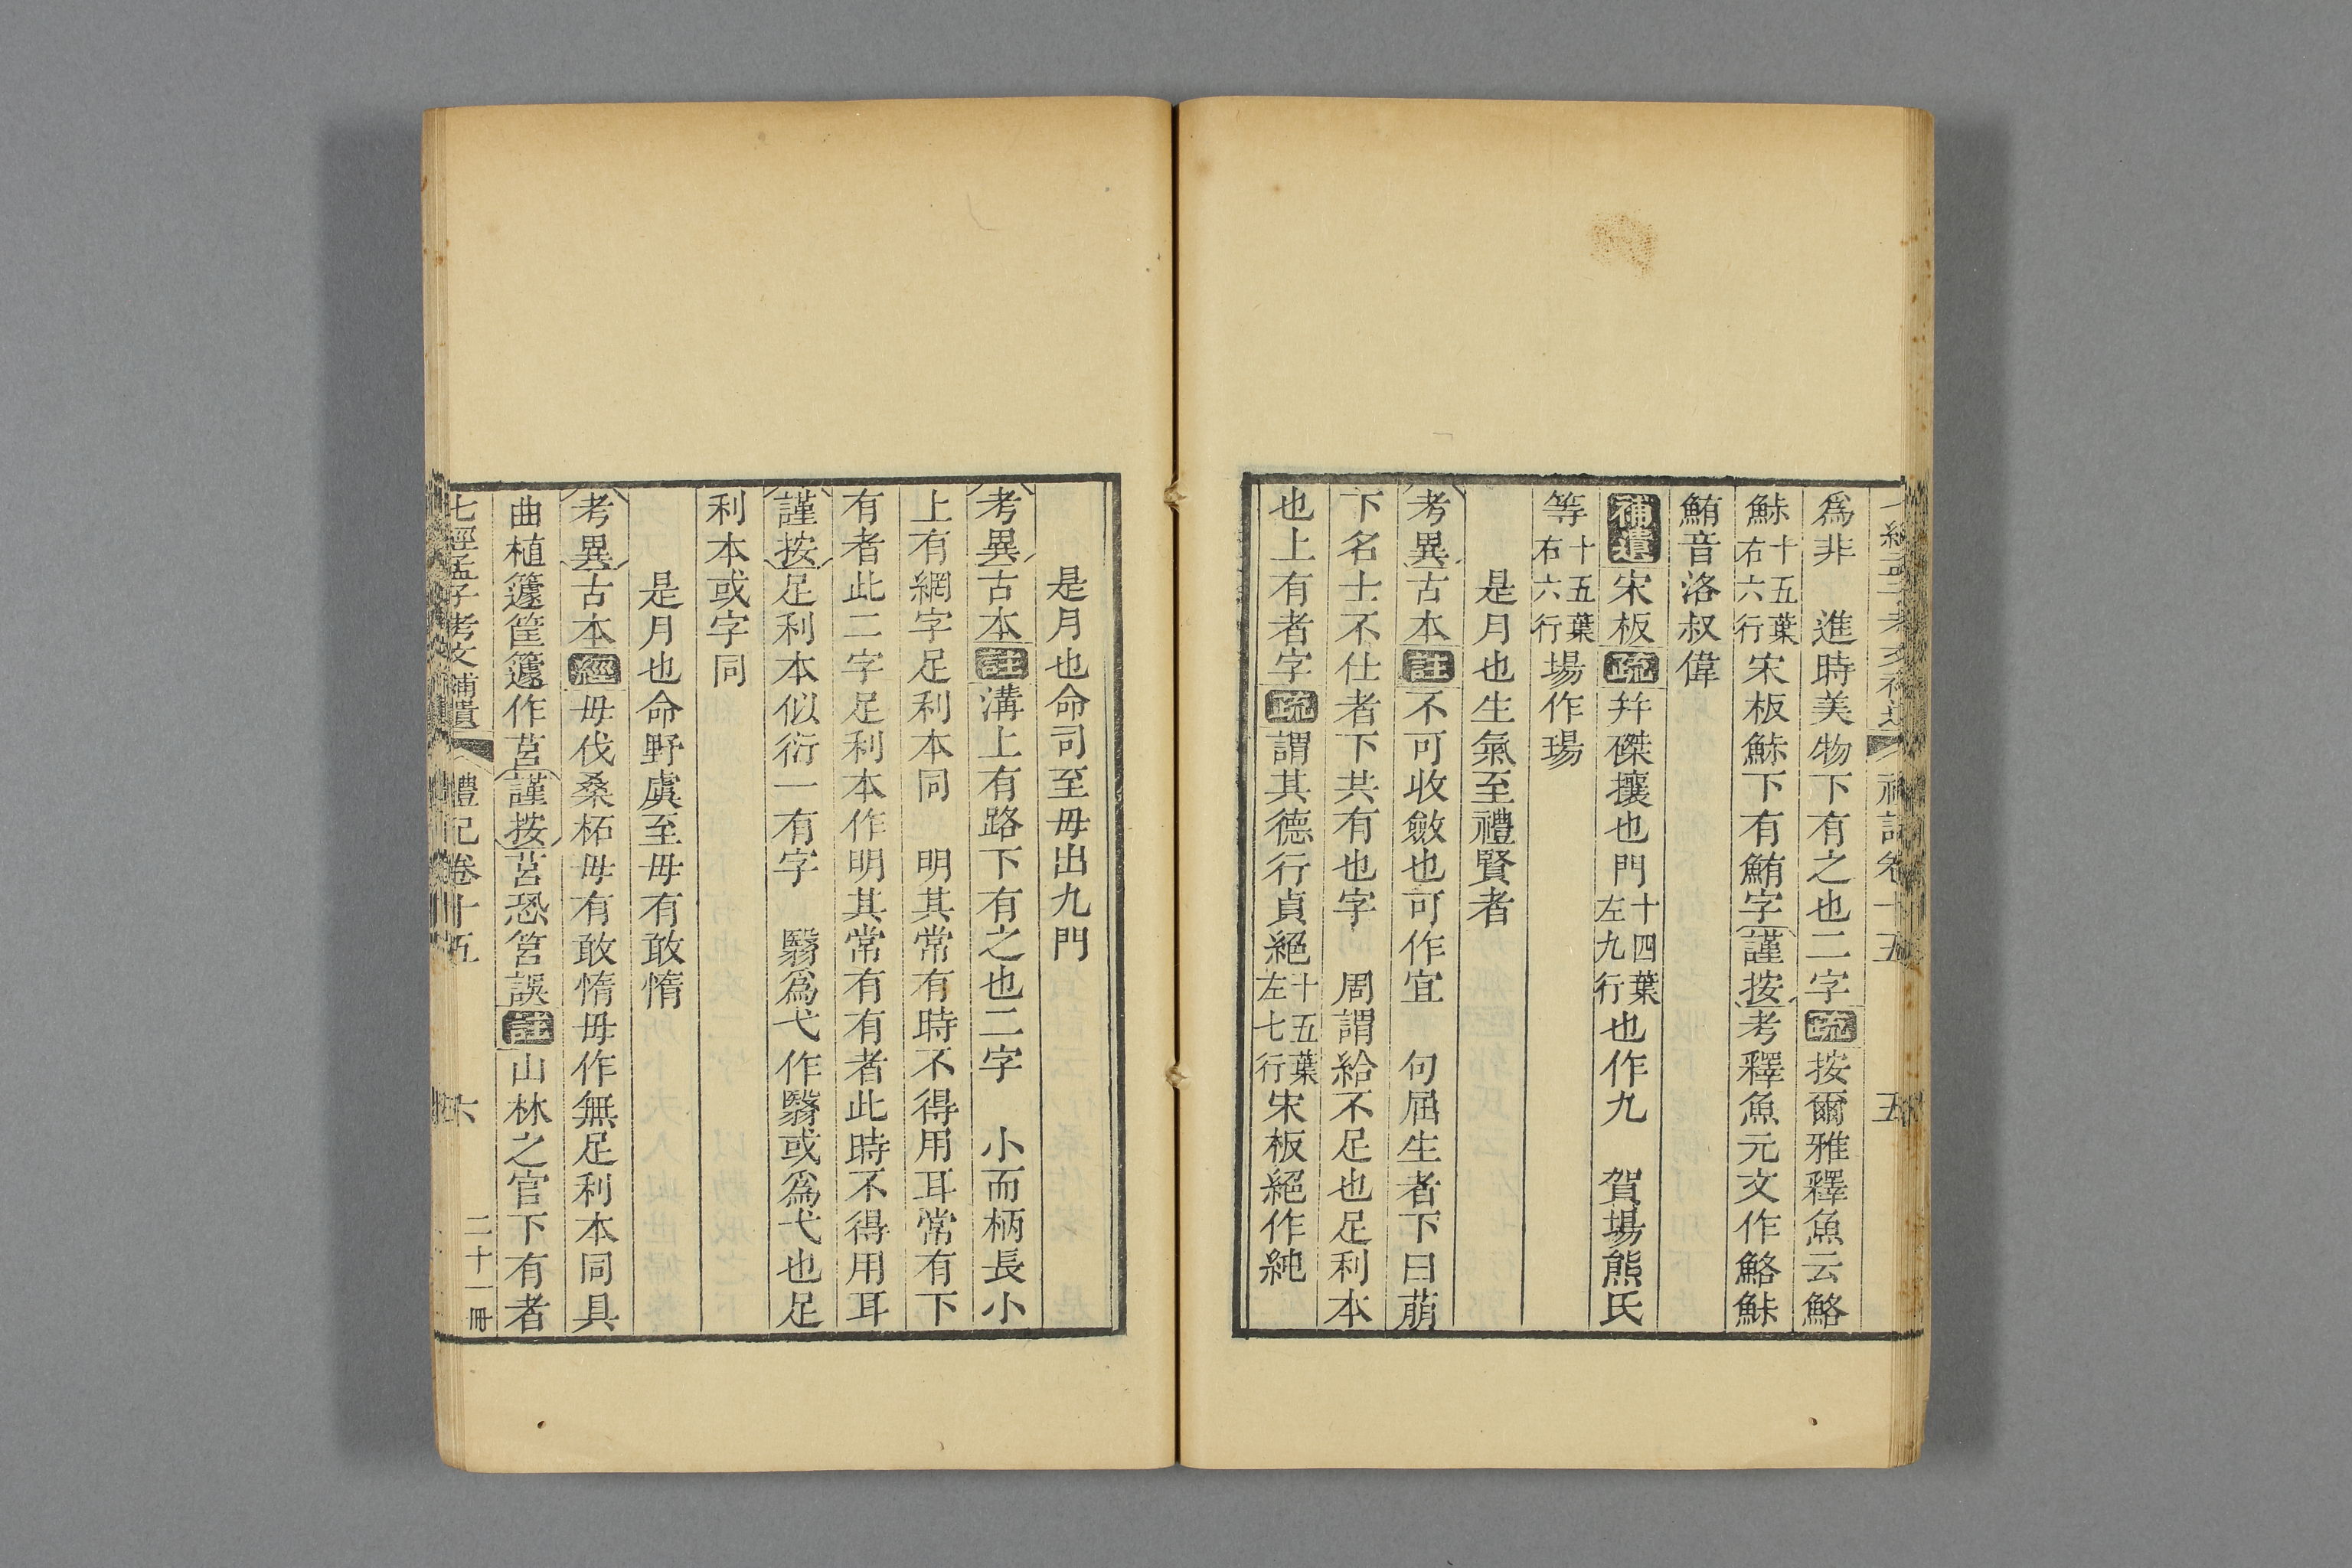 爲非　進時美物下有之也二字疏按爾雅釋魚云鮥
鮛十五葉右六行宋板鮛下有鮪字謹按考釋魚元文作鮥鮛
鮪音洛叔偉
補遺宋板疏幷磔攘也門十四葉左九行也作九　賀場熊氏
等十五葉右六行場作瑒
是月也生氣至禮賢者
考異古本註不可收斂也可作宜　句屈生者下曰萠
下名士不仕者下共有也字　周謂給不足也足利本
也上有者字疏謂其德行貞絕十五葉左七行宋板絕作純
是月也命司至毋出九門
考異古本註溝上有路下有之也二字　小而柄長小
上有網字足利本同　明其常有時不得用耳常有下
有者此二字足利本作明其常有有者此時不得用耳
謹按足利本似衍一有字　翳爲弋作翳或爲弋也足
利本或字同
是月也命野虞至毋有敢惰
考異古本經毋伐桑柘毋有敢惰毋作無足利本同具
曲植籧筐籧作莒謹按莒恐筥誤註山林之官下有者
七經孟子考文補遺　禮記卷十五　六　二十一冊